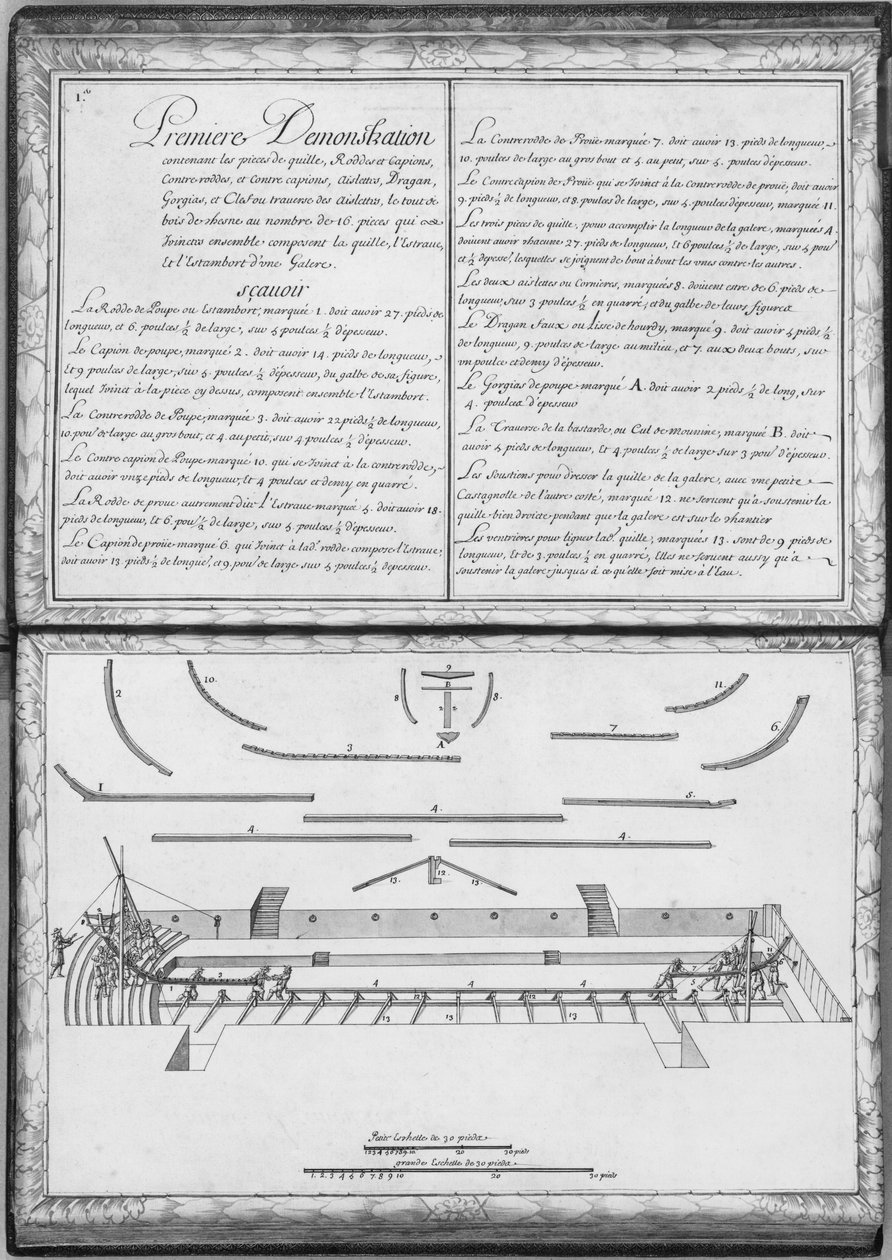 1.e
Premiere Demonstration
contenant les pieces de quille, Roddes et Capions,
Contre roddes, et Contre capions, Aislettes, Dragan,
Gorgias, et Clef ou traverse des Aislettes, le tout de
bois de chesne au nombre de 16. pieces qui
Joinctes ensemble composent la quille, l'Estraue,
Et l'Estambort d'vne Galere.
sçauoir
La Rodde de Poupe ou Estambort, marquée 1. doit auoir 27. pieds de
longueur, et 6. poulces ½ de large, sur 5 poulces ½ d'épesseur.
Le Capion de poupe, marqué 2. doit auoir 14. pieds de longueur,
Et 9 poulces de large, sur 5. poulces ½ d'épesseur, du galbe de sa figure,
lequel Joinct à la piece cy dessus, composent ensemble l'Estambort.
La Contrerodde de Poupe, marquée 3. doit auoir 22 pieds ½ de longueur,
10. poul. de large au gros bout, et 4. au petit, sur 4 poulces ½ d'épesseur.
Le Contre capion de Poupe marqué 10. qui se Joinct à la contrerodde,
doit auoir vnze pieds de longueur, Et 4 poulces et demy en quarré.
La Rodde de proue autrement dit l'Estraue marquée 5. doit auoir 18.
pieds de longueur, Et 6. poul ½ de large, sur 5 poulces ½ d'épesseur.
Le Capion de proüe marqué 6. qui Joinct à lad. rodde compose l'Estraue,
doit auoir 13. pieds ½ de longue.r, et 9. poul de large sur 5 poulces ½ depesseur.
La Contrerodde de Proüe marquée 7. doit auoir 13. pieds de longueur,
10. poulces de large au gros bout et 5. au petit, sur 5. poulces d'épesseur.
Le Contrecapion de Proüe qui se Joinct à la Contrerodde de proue, doit auoir
9. pieds ½ de longueur, et 8. poulces de large, sur 5. poulces d'épesseur, marquée 11.
Les trois pieces de quille, pour accomplir la longueur de la galere, marquées 4.
doiuent auoir chacune 27. pieds de longueur, Et 6 poulces ½ de large, sur 5 poul
et ½ depesse.r, lesquelles se joignent de bout à bout les vnes contre les autres.
Les deux aislettes ou Cornieres, marquées 8. doiuent estre de 6. pieds de
longueur, sur 3 poulces ½ en quarré, et du galbe de leurs figures
Le Dragan faux ou Lisse de hourdy, marqué 9. doit auoir 5 pieds ½
de longueur, 9. poulces de large au milieu, et 7. aux deux bouts, sur
vn poulce et demy d'épesseur.
Le Gorgias de poupe marqué A. doit auoir 2 pieds ½ de long, Sur
4. poulces d'epesseur
La Trauerse de la bastarde, ou Cul de Mounine, marqué B. doit
auoir 5 pieds de longueur, Et 4. poulces ½ de large sur 3 poul d'épesseur.
Les Soustiens pour dresser la quille de la galere, auec vne petite
Castagnolle de l'autre costé, marquée 12. ne seruent qu'à soustenir la
quille bien droicte pendant que la galere est sur le chantier
Les ventrieres pour ligner lad. quille, marquées 13. sont de 9 pieds de
longueur, Et de 3. poulces ½ en quarré, Elles ne seruent aussy qu'a
soustenir la galere jusques à ce qu'elle soit mise à l'Eau.
2
10.
9
B
8
8.
2
2
A
11.
7
6.
3
1
5.
4.
4.
4.
13.
12.
13.
2
3
1
4
4
4
12
12
13
13
13
7
5
11
6
Petite Eschelle de 30 pieds
1 2 3 4 5 6 7 8 9 10 20 30 pieds
grande Eschelle de 30 pieds
1. 2. 3. 4 5 6 7. 8 9 10 20 30 pieds